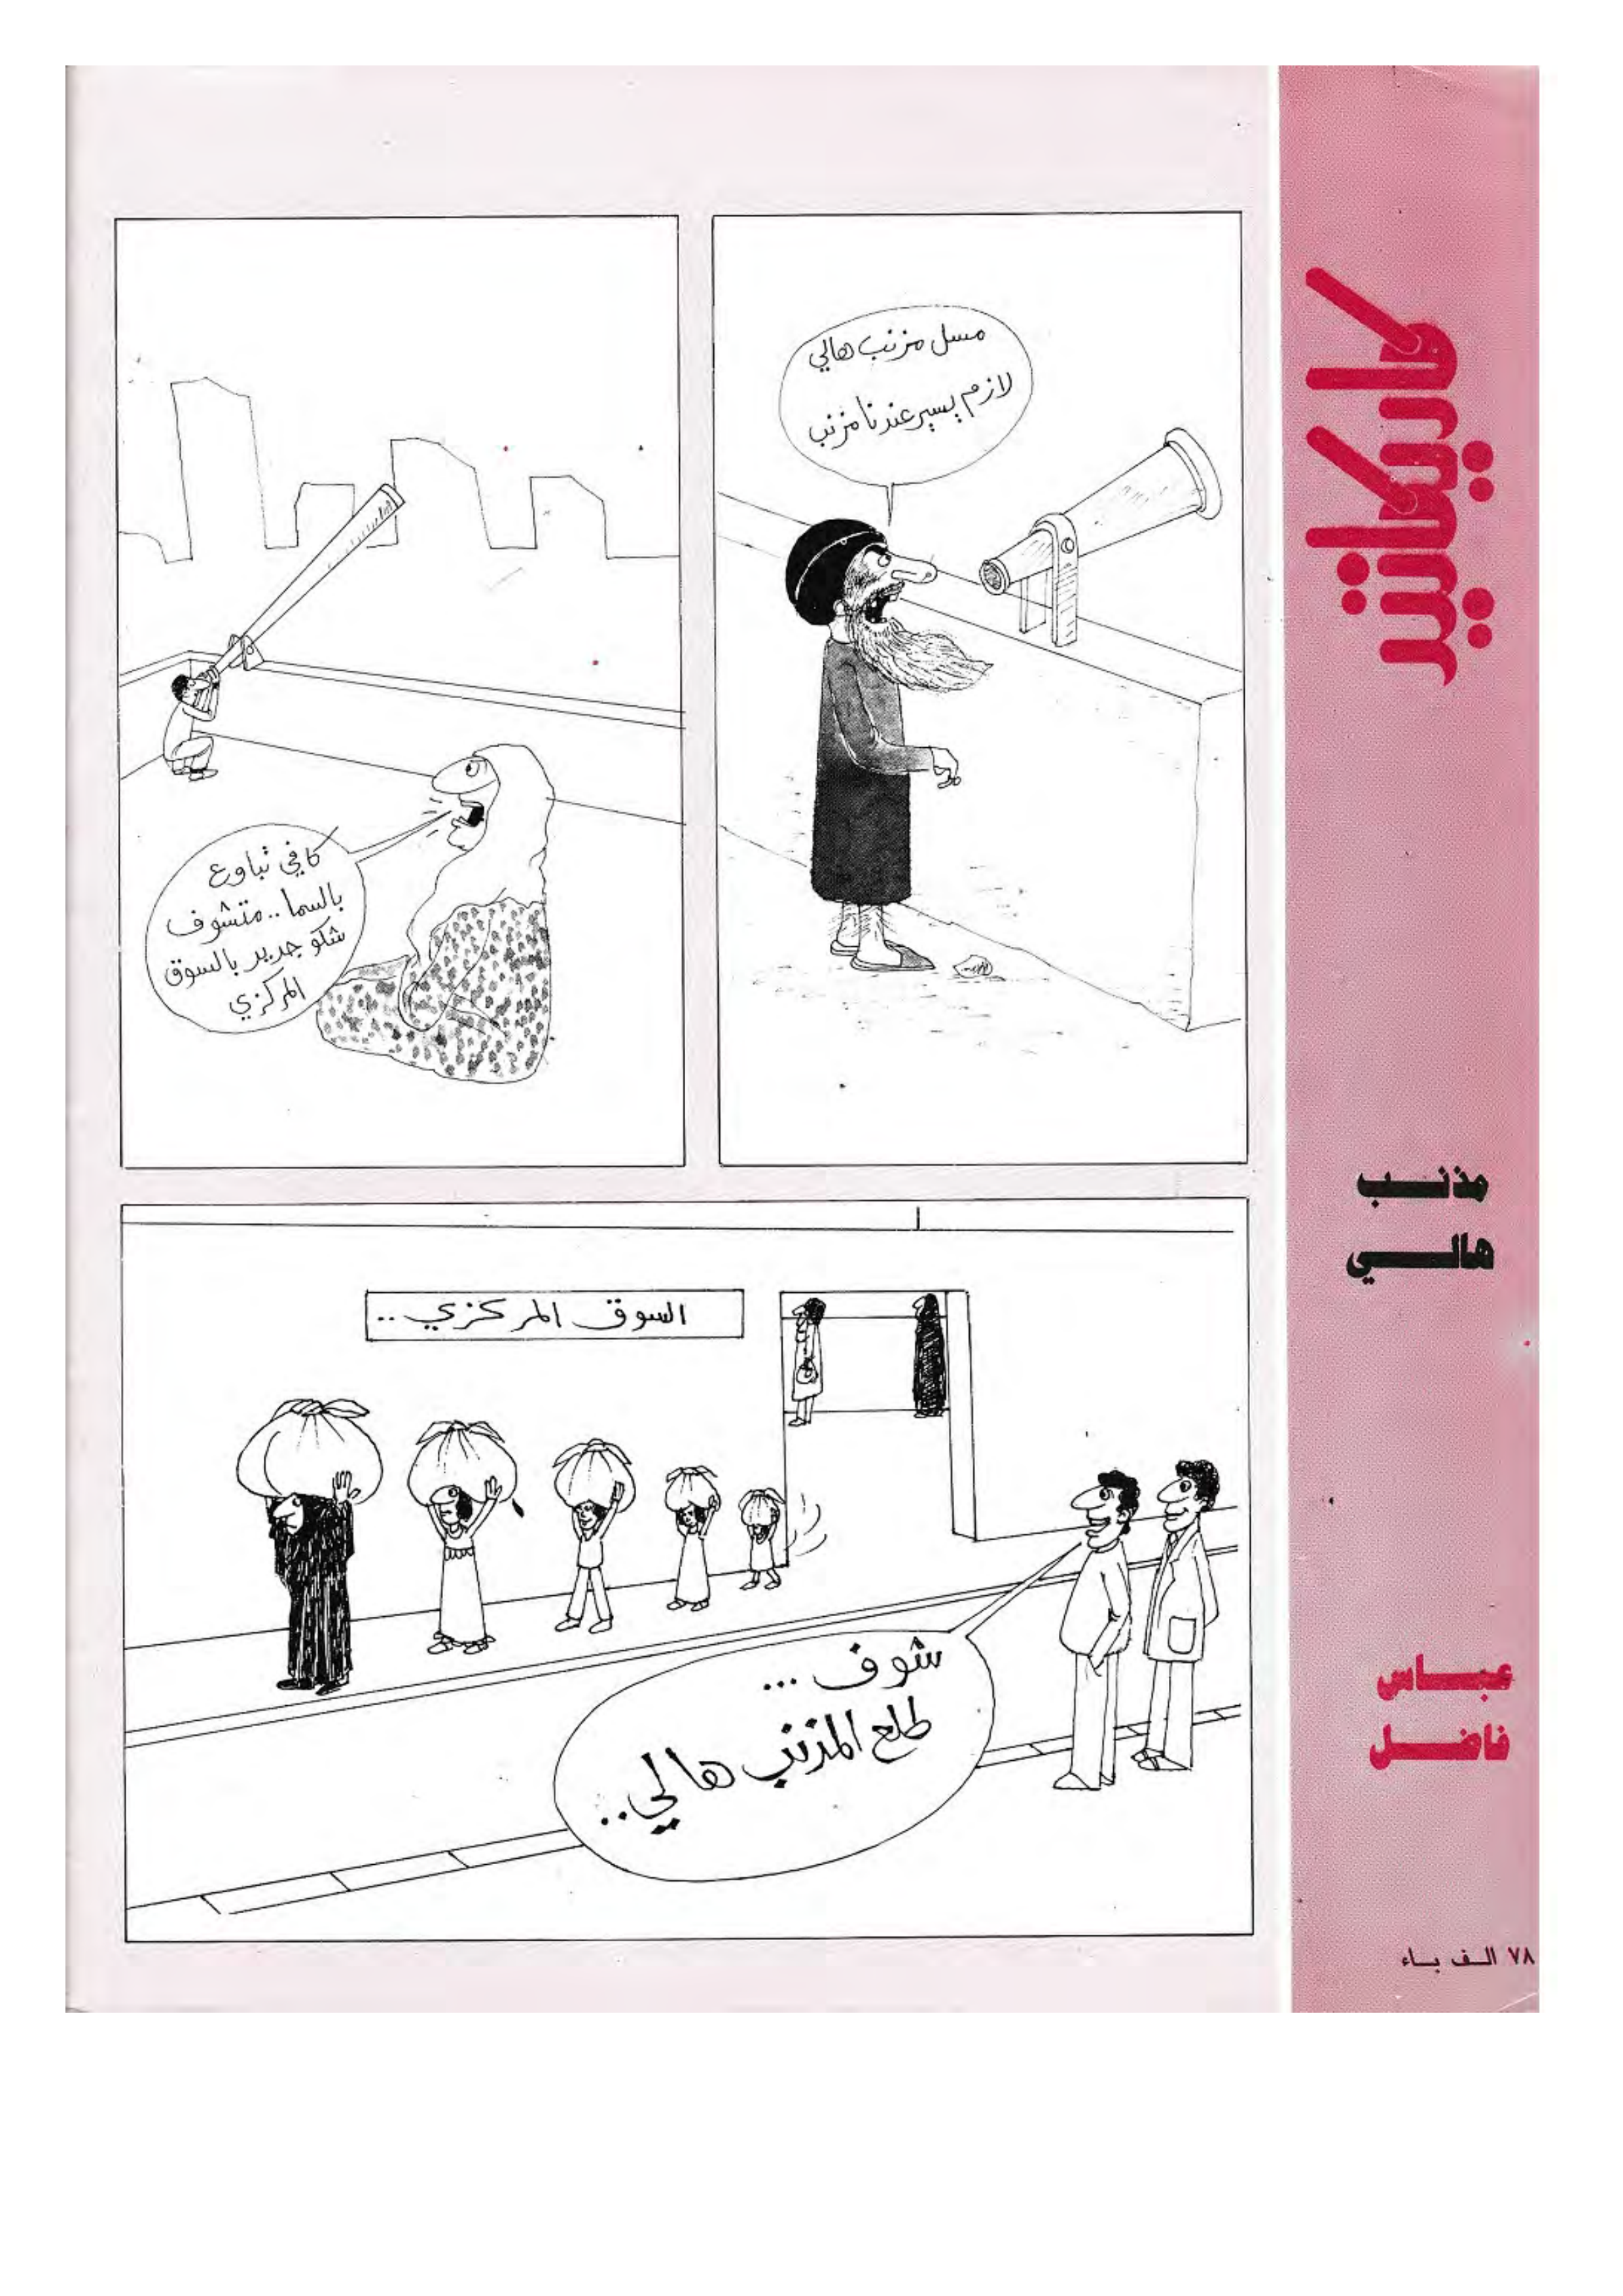 كاريكاتير
مذنب
هالي
عباس
فاضل
مسل مزنب هالي
لازم يسير عندنا مزنب
كافي تباوع
بالسما .. متشوف
شكو جديد بالسوق
المركزي
السوق المركزي ..
شوف ...
طلع المذنب هالي ..
٧٨ الف باء